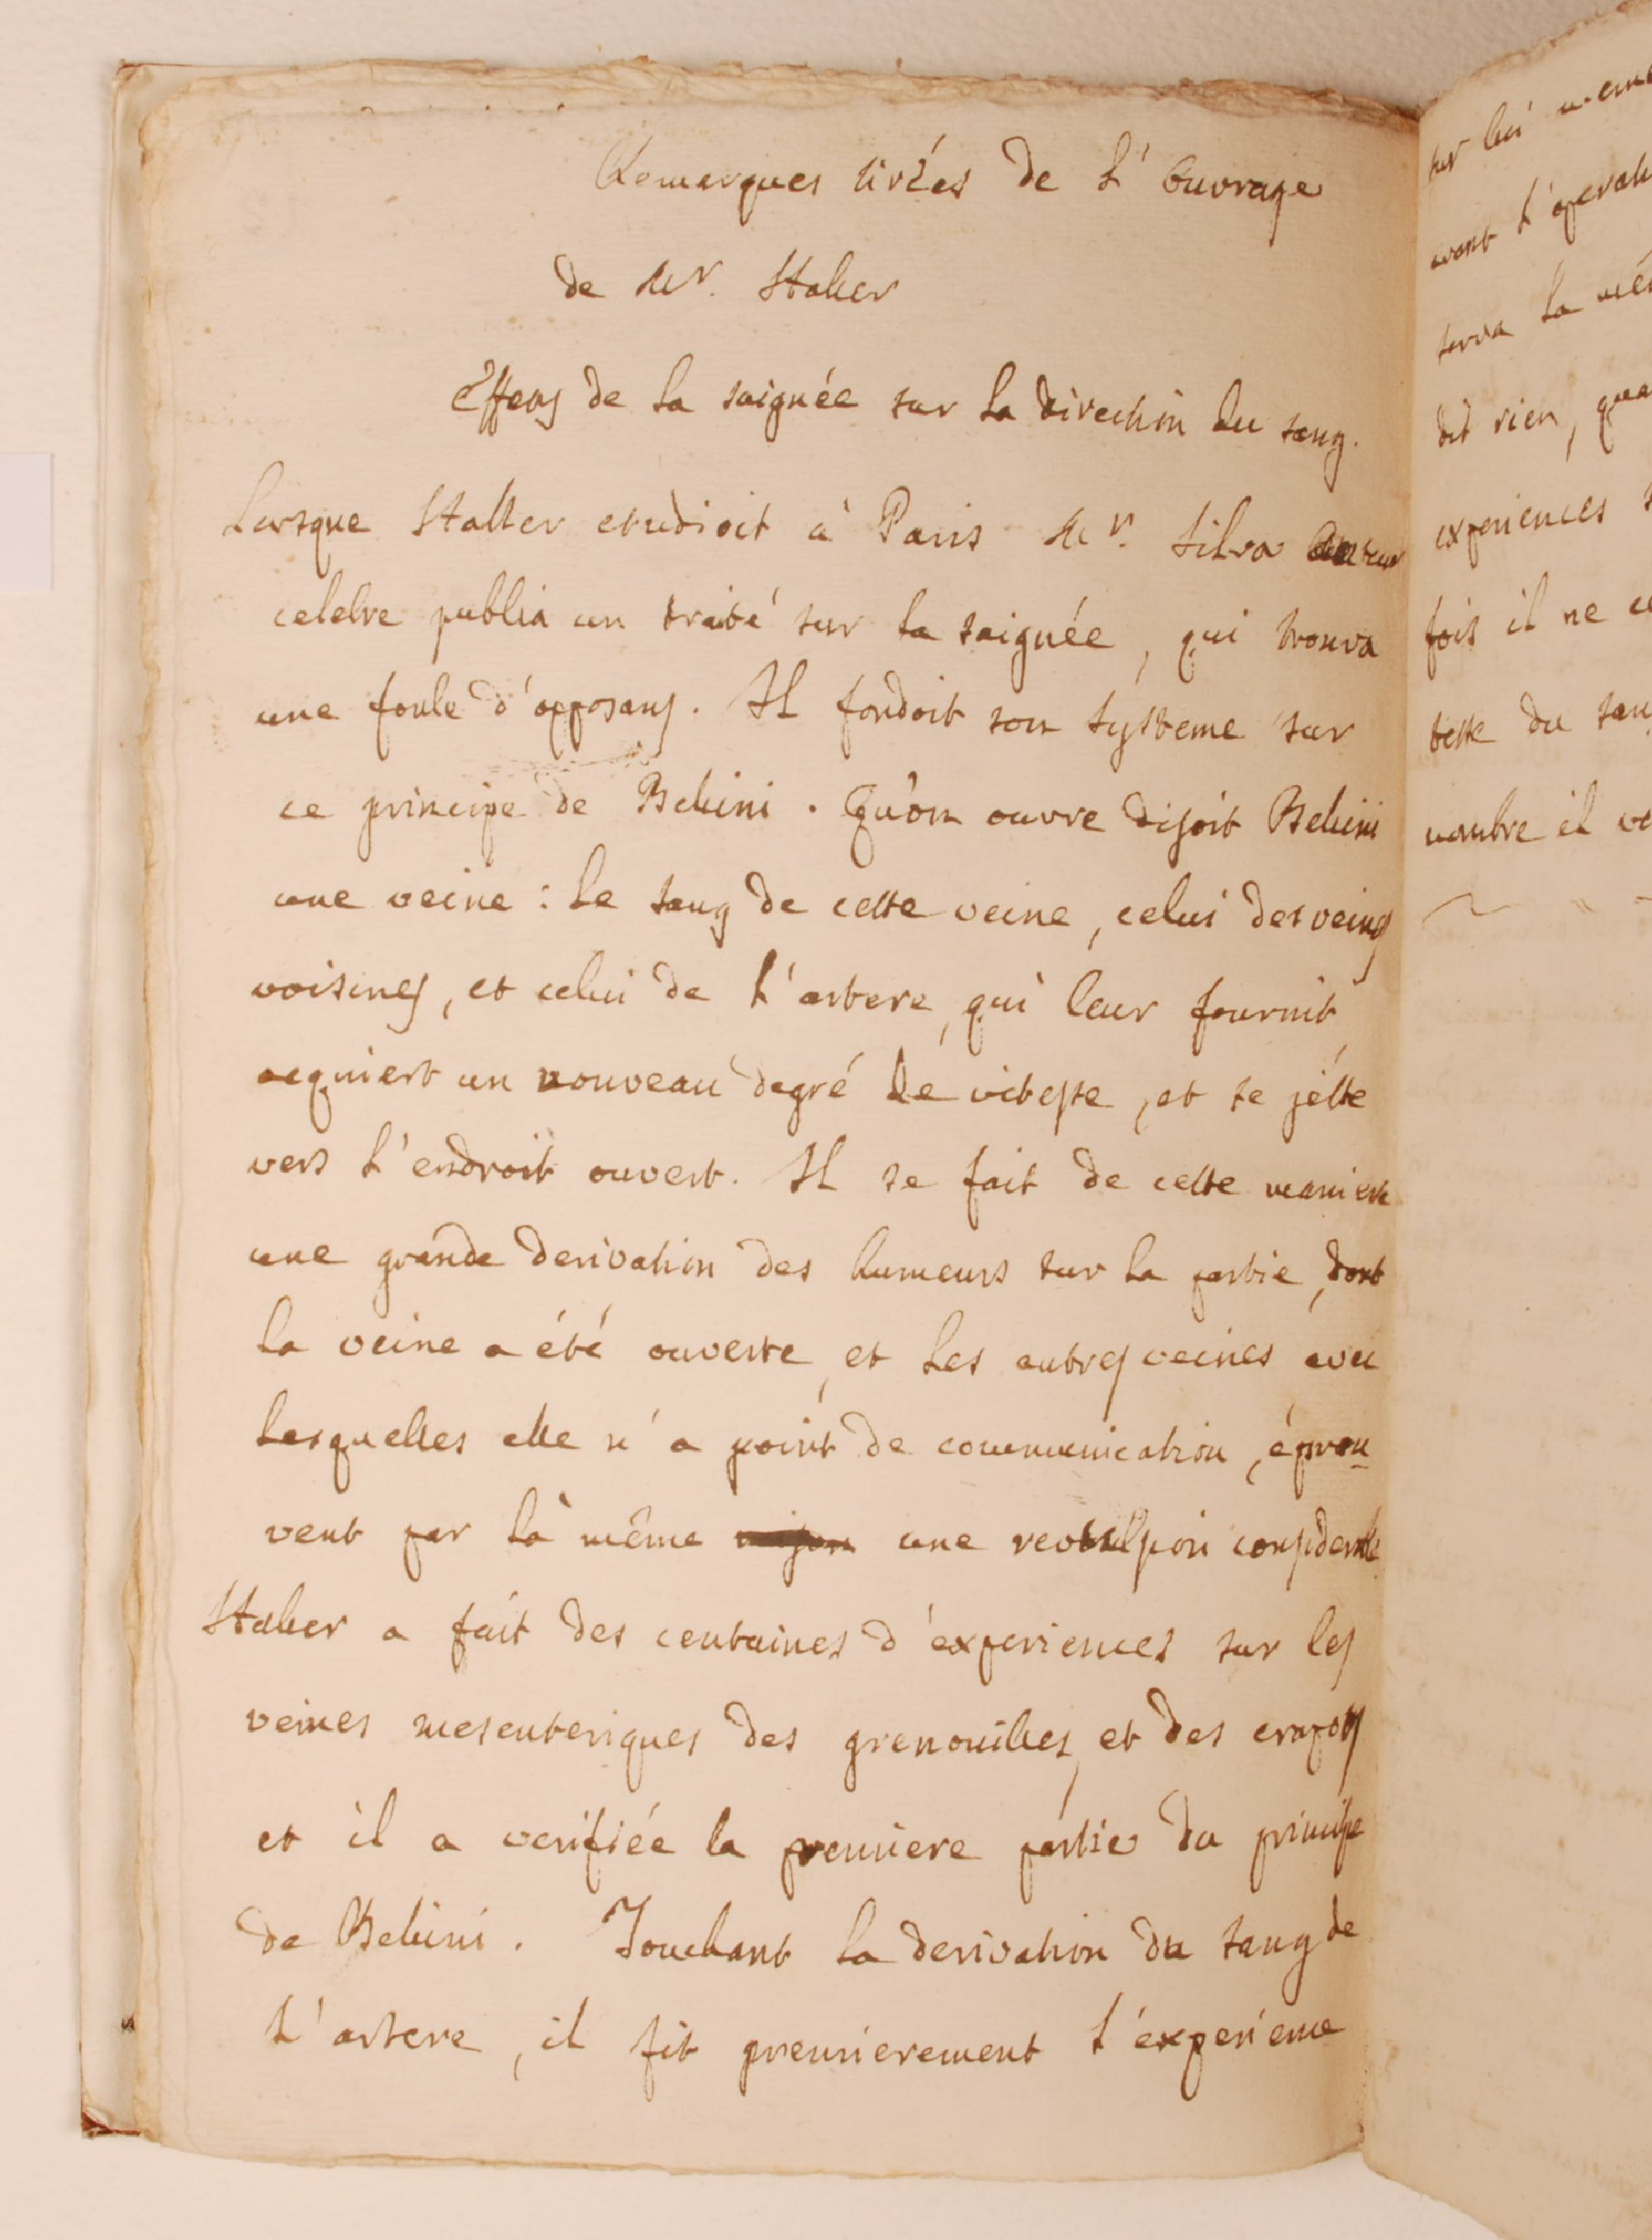 Remarques tirées de L'Ouvrage
de Mr. Haller
Effens de La saignée sur La direction du sang.
Lorsque Haller etudioit à Paris Mr. Silva Auteur
celebre publia un traité sur La saignée, qui trouva
une foule d'opposans. Il fondoit son Systeme sur
ce principe de Bellini. Qu'on ouvre disoit Bellini
une veine : Le sang de cette veine, celui des veines
voisines, et celui de L'artere, qui leur fournit
acquiert un nouveau degré de vitesse, et se jétte
vers L'endroit ouvert. Il se fait de cette maniere
une grande derivation des humeurs sur La partie, dont
La veine a été ouverte, et Les autres veines avec
Lesquelles elle n'a point de communication, éprou
vent par Là même une revulsion considerable
Haller a fait des centaines d'experiences sur les
veines mesenteriques des grenouilles, et des crapots
et il a verifiée la premiere partie du principe
de Bellini. Touchant La derivation du sang de
L'artere, il fit premierement L'experience
sur lui meme
avant L'operati
serva La mé
dit rien, qua
experiences s
fois il ne ce
tesse du san
nombre il ve